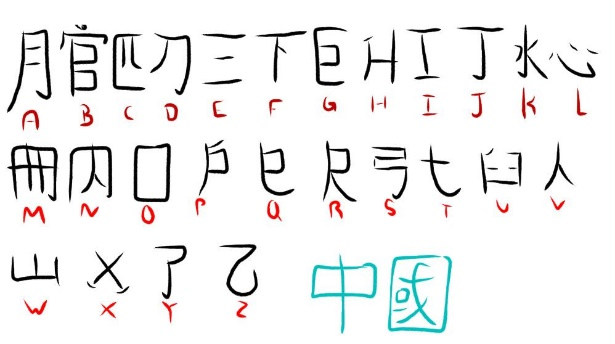 月官匹刀三下巨卄工丁水心
A B C D E F G H I J K L
冊内口户巳尺弓七臼人
M N O P Q R S T U V
山乂了乙 中國
W X Y Z